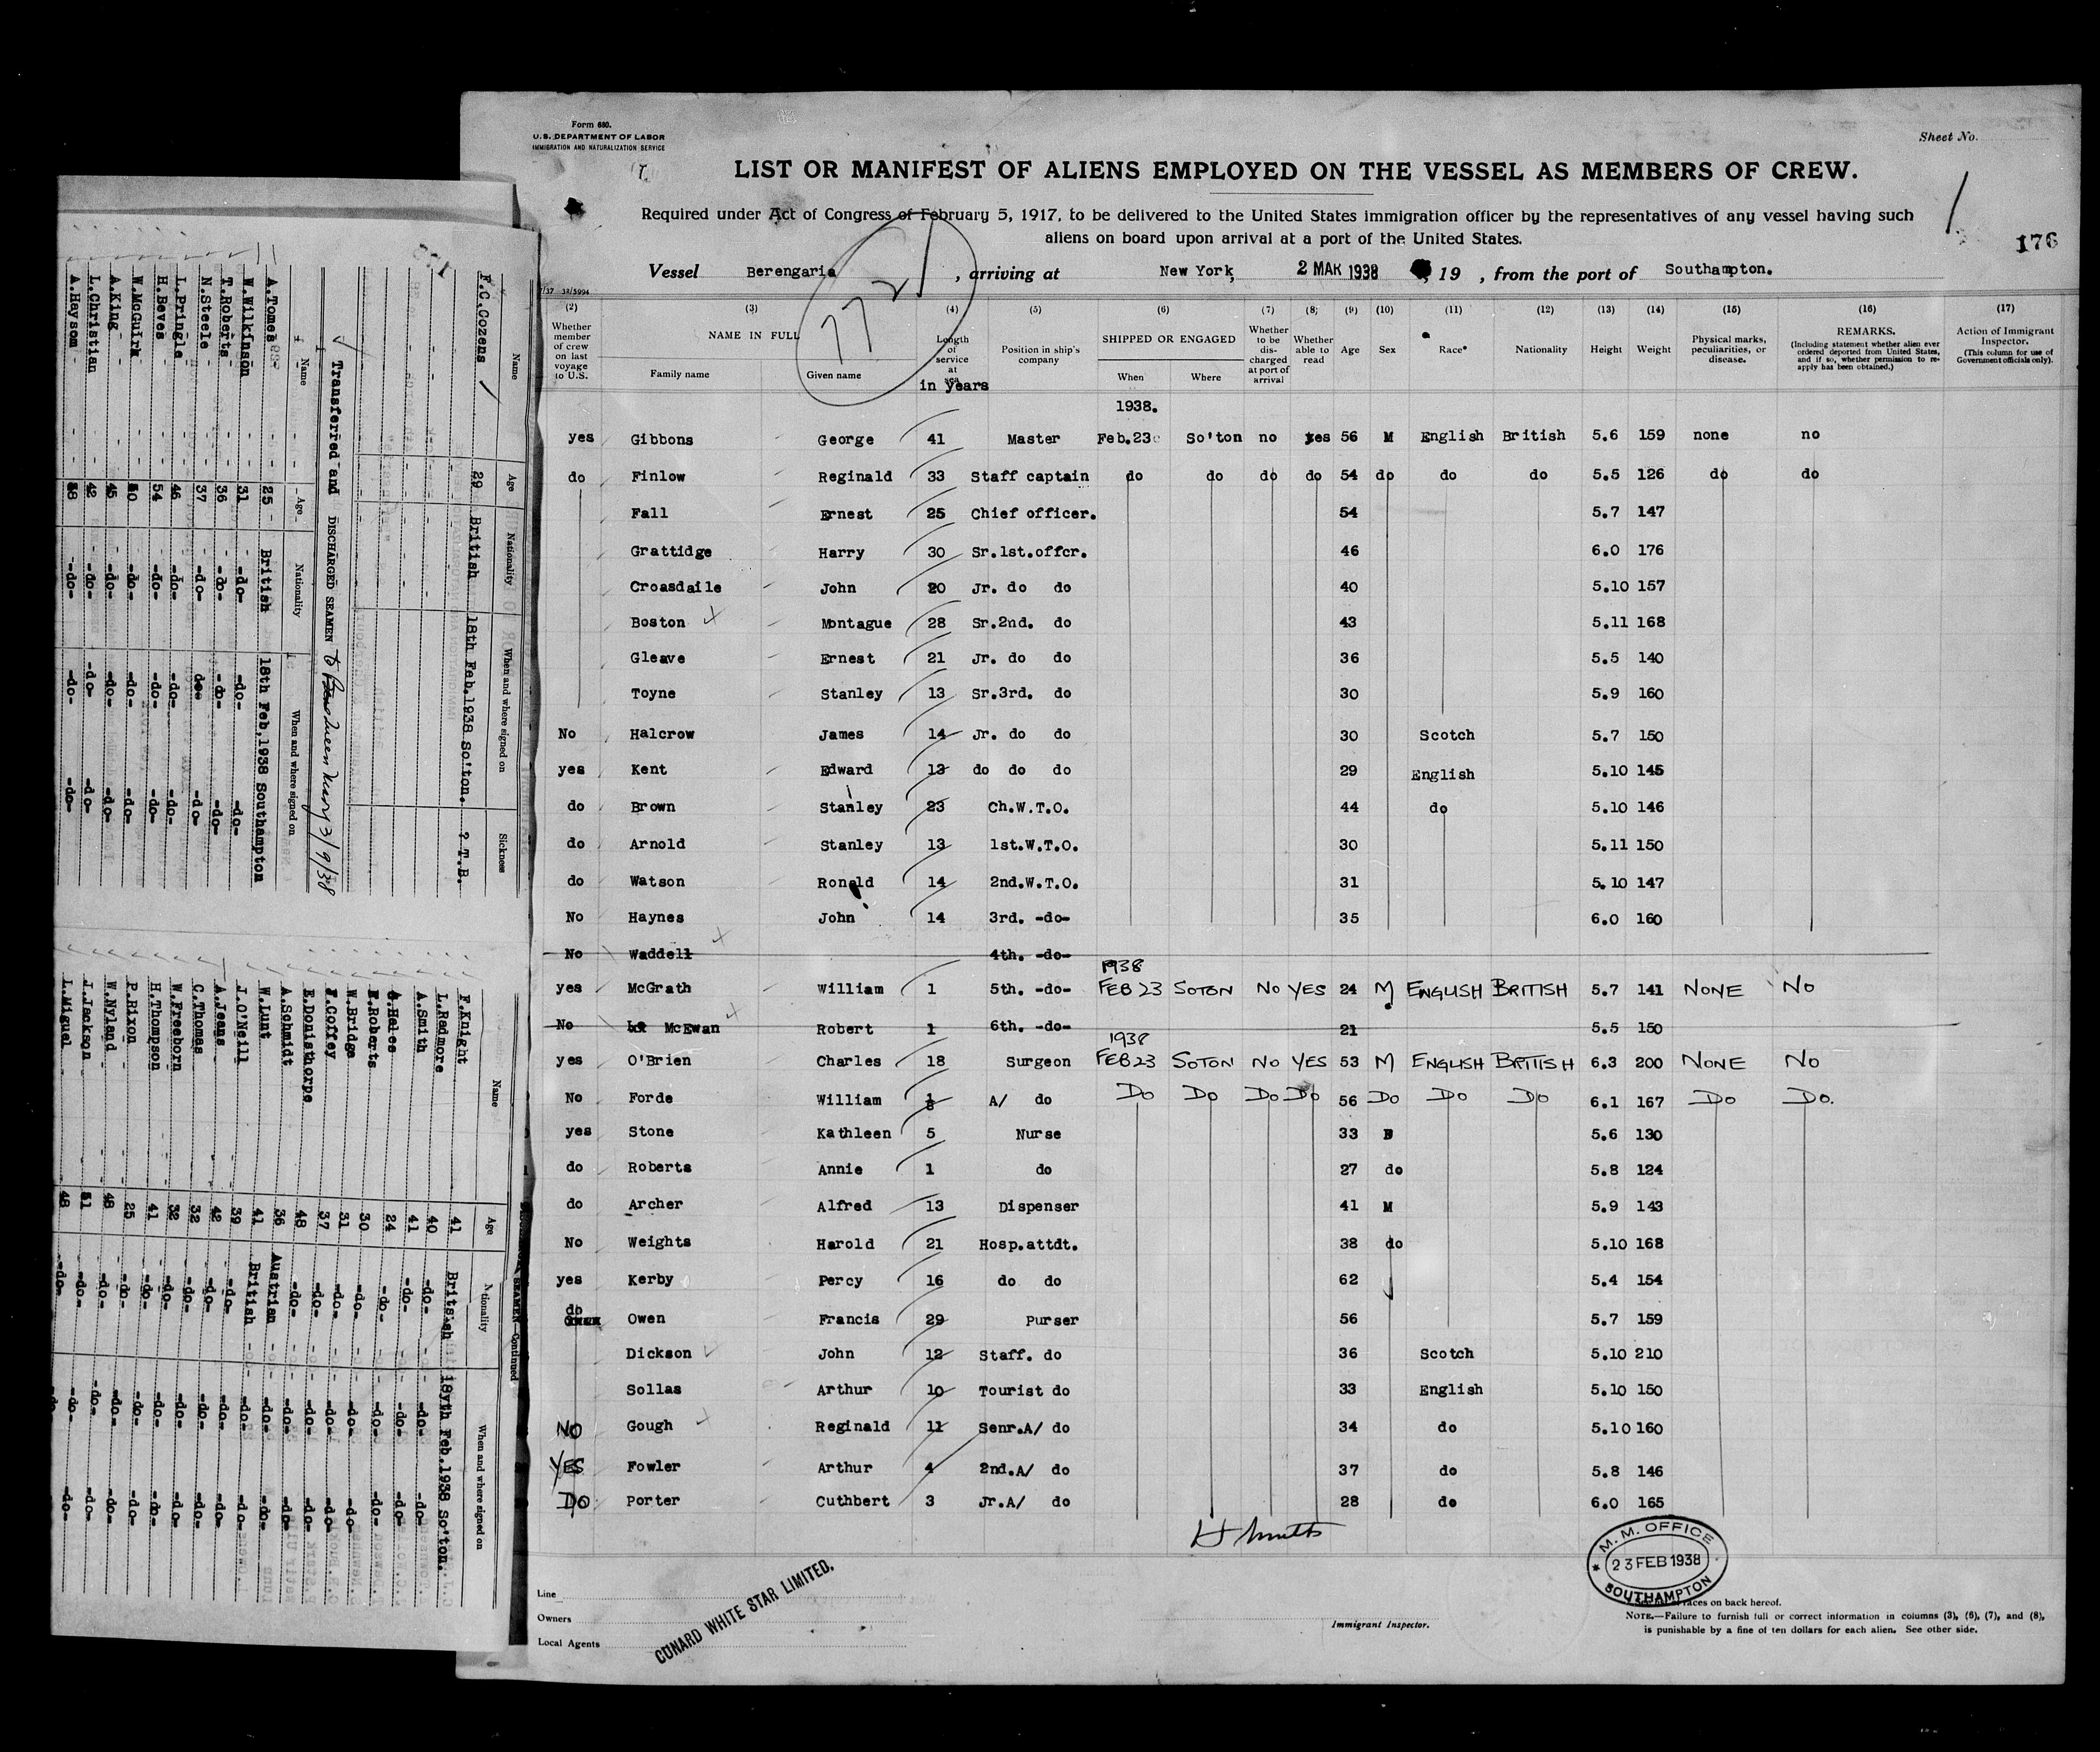 Form 680.
U.S. DEPARTMENT OF LABOR
IMMIGRATION AND NATURALIZATION SERVICE
Sheet No.
1
LIST OR MANIFEST OF ALIENS EMPLOYED ON THE VESSEL AS MEMBERS OF CREW.
Required under Act of Congress of February 5, 1917, to be delivered to the United States immigration officer by the representatives of any vessel having such
aliens on board upon arrival at a port of the United States.
176
Vessel Berengaria, arriving at New York, 2 MAR 1938, 19 , from the port of Southampton.
(2) Whether member of crew on last voyage to U.S.
(3) NAME IN FULL Family name Given name
(4) Length of service at sea in years
(5) Position in ship's company
(6) SHIPPED OR ENGAGED When Where
(7) Whether to be discharged at port of arrival
(8) Whether able to read
(9) Age
(10) Sex
(11) Race*
(12) Nationality
(13) Height
(14) Weight
(15) Physical marks, peculiarities, or disease.
(16) REMARKS. (Including statement whether alien ever ordered deported from United States, and if so, whether permission to reapply has been obtained.)
(17) Action of Immigrant Inspector. (This column for use of Government officials only).
1938.
yes Gibbons George 41 Master Feb.23 So'ton no yes 56 M English British 5.6 159 none no
do Finlow Reginald 33 Staff captain do do do do 54 do do do 5.5 126 do do
Fall Ernest 25 Chief officer. 54 5.7 147
Grattidge Harry 30 Sr.1st.offcr. 46 6.0 176
Croasdaile John 20 Jr. do do 40 5.10 157
Boston Montague 28 Sr.2nd. do 43 5.11 168
Gleave Ernest 21 Jr. do do 36 5.5 140
Toyne Stanley 13 Sr.3rd. do 30 5.9 160
No Halcrow James 14 Jr. do do 30 Scotch 5.7 150
yes Kent Edward 13 do do do 29 English 5.10 145
do Brown Stanley 23 Ch.W.T.O. 44 do 5.10 146
do Arnold Stanley 13 1st.W.T.O. 30 5.11 150
do Watson Ronald 14 2nd.W.T.O. 31 5.10 147
No Haynes John 14 3rd. -do- 35 6.0 160
No Waddell 4th. -do-
1938
yes McGrath William 1 5th. -do- FEB 23 SOTON NO YES 24 M ENGLISH BRITISH 5.7 141 NONE NO
No McEwan Robert 1 6th. -do- 21 5.5 150
1938
yes O'Brien Charles 18 Surgeon FEB 23 SOTON NO YES 53 M ENGLISH BRITISH 6.3 200 NONE NO
No Forde William A/ do DO DO DO DO 56 DO DO DO 6.1 167 DO DO.
yes Stone Kathleen 5 Nurse 33 F 5.6 130
do Roberts Annie 1 do 27 do 5.8 124
do Archer Alfred 13 Dispenser 41 M 5.9 143
No Weights Harold 21 Hosp.attdt. 38 do 5.10 168
yes Kerby Percy 16 do do 62 5.4 154
do Owen Francis 29 Purser 56 5.7 159
Dickson John 12 Staff. do 36 Scotch 5.10 210
Sollas Arthur 10 Tourist do 33 English 5.10 150
NO Gough Reginald 11 Senr.A/ do 34 do 5.10 160
YES Fowler Arthur 4 2nd.A/ do 37 do 5.8 146
DO Porter Cuthbert 3 Jr.A/ do 28 do 6.0 165
Line
Owners
Local Agents
CUNARD WHITE STAR LIMITED.
Immigrant Inspector.
M. M. OFFICE
23 FEB 1938
SOUTHAMPTON
races on back hereof.
NOTE.—Failure to furnish full or correct information in columns (3), (6), (7), and (8),
is punishable by a fine of ten dollars for each alien. See other side.
Name Age Nationality When and where signed on Sickness
F.C.Cozens 29 British 18th Feb.1938 So'ton. ? T.B.
Transferred and DISCHARGED SEAMEN to Queen Mary 3/9/38
Name Age Nationality When and where signed on
A.Tomes 25 British 18th Feb,1938 Southampton
W.Wilkinson 31 -do- -do- -do-
T.Roberts 36 -do- -do- -do-
N.Steele 37 -do- do -do-
L.Pringle 46 -do- -do- -do-
H.Beves 54 -do- -do- -do-
W.McGuirk -do- -do- -do-
A.King 45 -do- -do- -do-
L.Christian 42 -do- -do- -do-
A.Haysom -do- -do- -do-
SEAMEN—Continued
Name Age Nationality When and where signed on
F.Knight 41 Britsish 18yth Feb.1938 So'ton.
L.Radmore 40 -do- -do- -do-
A.Smith 41 -do- -do- -do-
24 -do- -do- -do-
E.Roberts 30 -do- -do- -do-
W.Bridge 31 -do- -do- -do-
F.Coffey 37 -do- -do- -do-
E.Donisthorpe 48 -do- -do- -do-
A.Schmidt 36 Austrian -do- -do-
W.Lunt 41 British -do- -do-
J.O'Neill 39 -do- -do- -do-
A.Jeans 42 -do- -do- -do-
C.Thomas 32 -do- -do- -do-
W.Freeborn 32 -do- -do- -do-
H.Thompson 41 -do- -do- -do-
P.Rixon 25 -do- -do- -do-
W.Nyland 48 -do- -do- -do-
J.Jackson -do- -do- -do-
L.Miguel 48 -do- -do- -do-